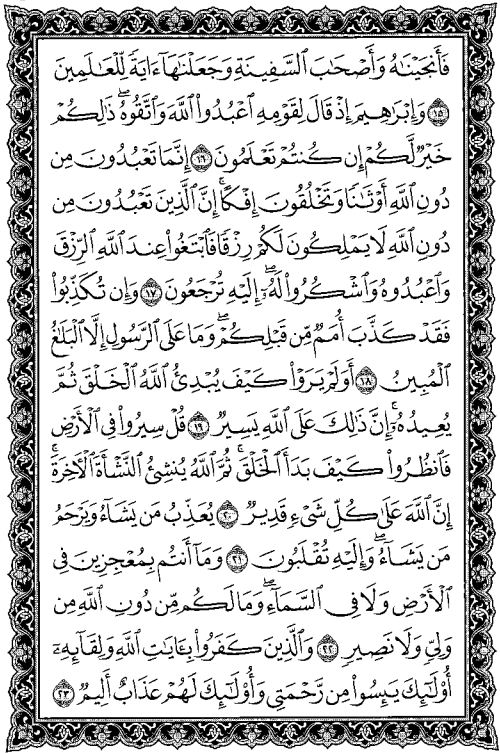 فَأَنجَيْنَٰهُ وَأَصْحَٰبَ ٱلسَّفِينَةِ وَجَعَلْنَٰهَآ ءَايَةً لِّلْعَٰلَمِينَ
١٥ وَإِبْرَٰهِيمَ إِذْ قَالَ لِقَوْمِهِ ٱعْبُدُوا۟ ٱللَّهَ وَٱتَّقُوهُ ۖ ذَٰلِكُمْ
خَيْرٌ لَّكُمْ إِن كُنتُمْ تَعْلَمُونَ ١٦ إِنَّمَا تَعْبُدُونَ مِن
دُونِ ٱللَّهِ أَوْثَٰنًا وَتَخْلُقُونَ إِفْكًا ۚ إِنَّ ٱلَّذِينَ تَعْبُدُونَ مِن
دُونِ ٱللَّهِ لَا يَمْلِكُونَ لَكُمْ رِزْقًا فَٱبْتَغُوا۟ عِندَ ٱللَّهِ ٱلرِّزْقَ
وَٱعْبُدُوهُ وَٱشْكُرُوا۟ لَهُۥٓ ۖ إِلَيْهِ تُرْجَعُونَ ١٧ وَإِن تُكَذِّبُوا۟
فَقَدْ كَذَّبَ أُمَمٌ مِّن قَبْلِكُمْ ۖ وَمَا عَلَى ٱلرَّسُولِ إِلَّا ٱلْبَلَٰغُ
ٱلْمُبِينُ ١٨ أَوَلَمْ يَرَوْا۟ كَيْفَ يُبْدِئُ ٱللَّهُ ٱلْخَلْقَ ثُمَّ
يُعِيدُهُۥٓ ۚ إِنَّ ذَٰلِكَ عَلَى ٱللَّهِ يَسِيرٌ ١٩ قُلْ سِيرُوا۟ فِى ٱلْأَرْضِ
فَٱنظُرُوا۟ كَيْفَ بَدَأَ ٱلْخَلْقَ ۚ ثُمَّ ٱللَّهُ يُنشِئُ ٱلنَّشْأَةَ ٱلْءَاخِرَةَ ۚ
إِنَّ ٱللَّهَ عَلَىٰ كُلِّ شَىْءٍ قَدِيرٌ ٢٠ يُعَذِّبُ مَن يَشَآءُ وَيَرْحَمُ
مَن يَشَآءُ ۖ وَإِلَيْهِ تُقْلَبُونَ ٢١ وَمَآ أَنتُم بِمُعْجِزِينَ فِى
ٱلْأَرْضِ وَلَا فِى ٱلسَّمَآءِ ۖ وَمَا لَكُم مِّن دُونِ ٱللَّهِ مِن
وَلِىٍّ وَلَا نَصِيرٍ ٢٢ وَٱلَّذِينَ كَفَرُوا۟ بِـَٔايَٰتِ ٱللَّهِ وَلِقَآئِهِۦٓ
أُو۟لَٰٓئِكَ يَئِسُوا۟ مِن رَّحْمَتِى وَأُو۟لَٰٓئِكَ لَهُمْ عَذَابٌ أَلِيمٌ ٢٣